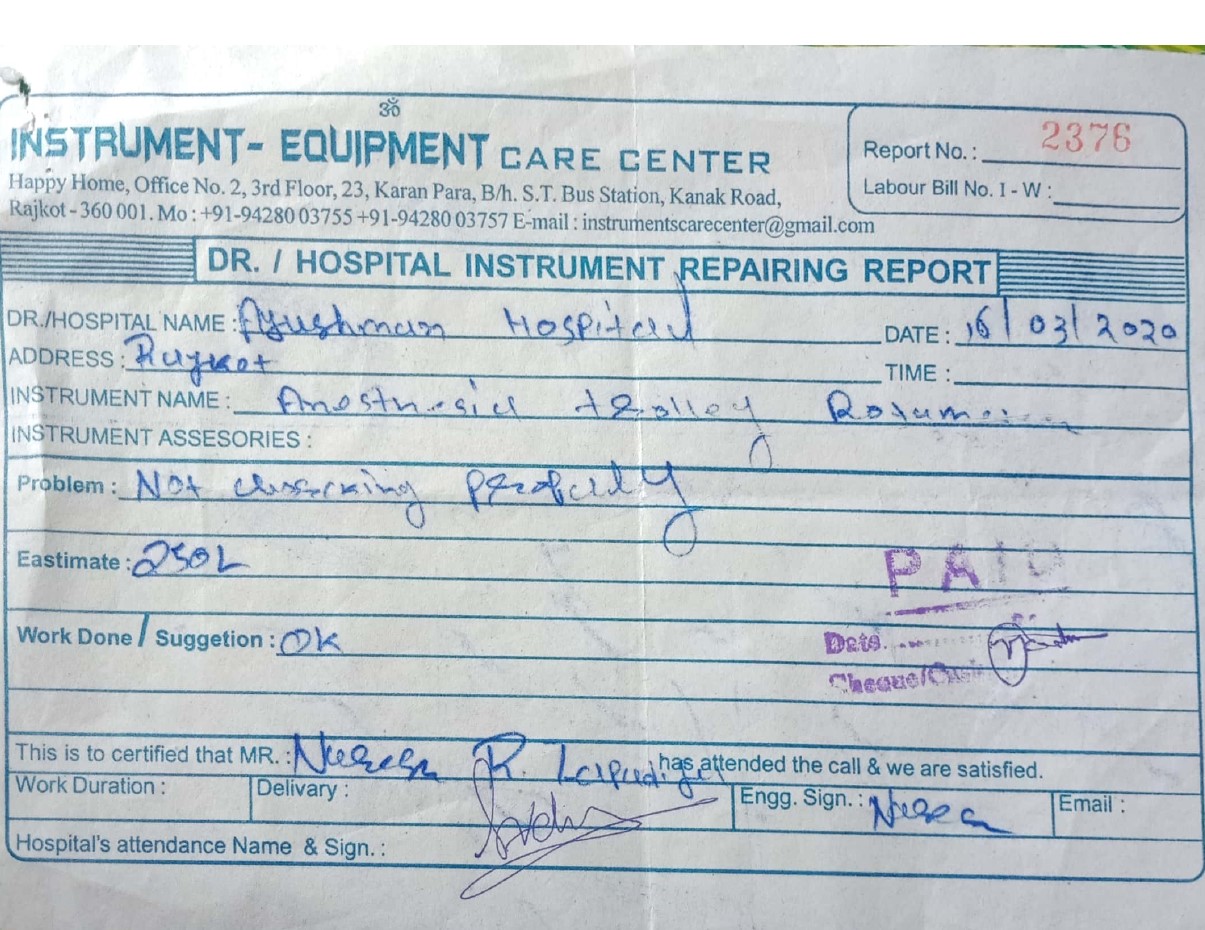 ॐ
INSTRUMENT- EQUIPMENT CARE CENTER
Happy Home, Office No. 2, 3rd Floor, 23, Karan Para, B/h. S.T. Bus Station, Kanak Road,
Rajkot - 360 001. Mo : +91-94280 03755 +91-94280 03757 E-mail : instrumentscarecenter@gmail.com
Report No. : 2376
Labour Bill No. I - W :
DR. / HOSPITAL INSTRUMENT REPAIRING REPORT
DR./HOSPITAL NAME : Ayushman Hospital
DATE : 16/03/2020
ADDRESS : Rajkot
TIME :
INSTRUMENT NAME : Anesthesia trolley
INSTRUMENT ASSESORIES :
Problem : Not properly
Eastimate :
PAID
Work Done / Suggetion : OK
Date
Cheque/Cash
This is to certified that MR. : R. has attended the call & we are satisfied.
Work Duration :
Delivary :
Engg. Sign. :
Email :
Hospital's attendance Name & Sign. :